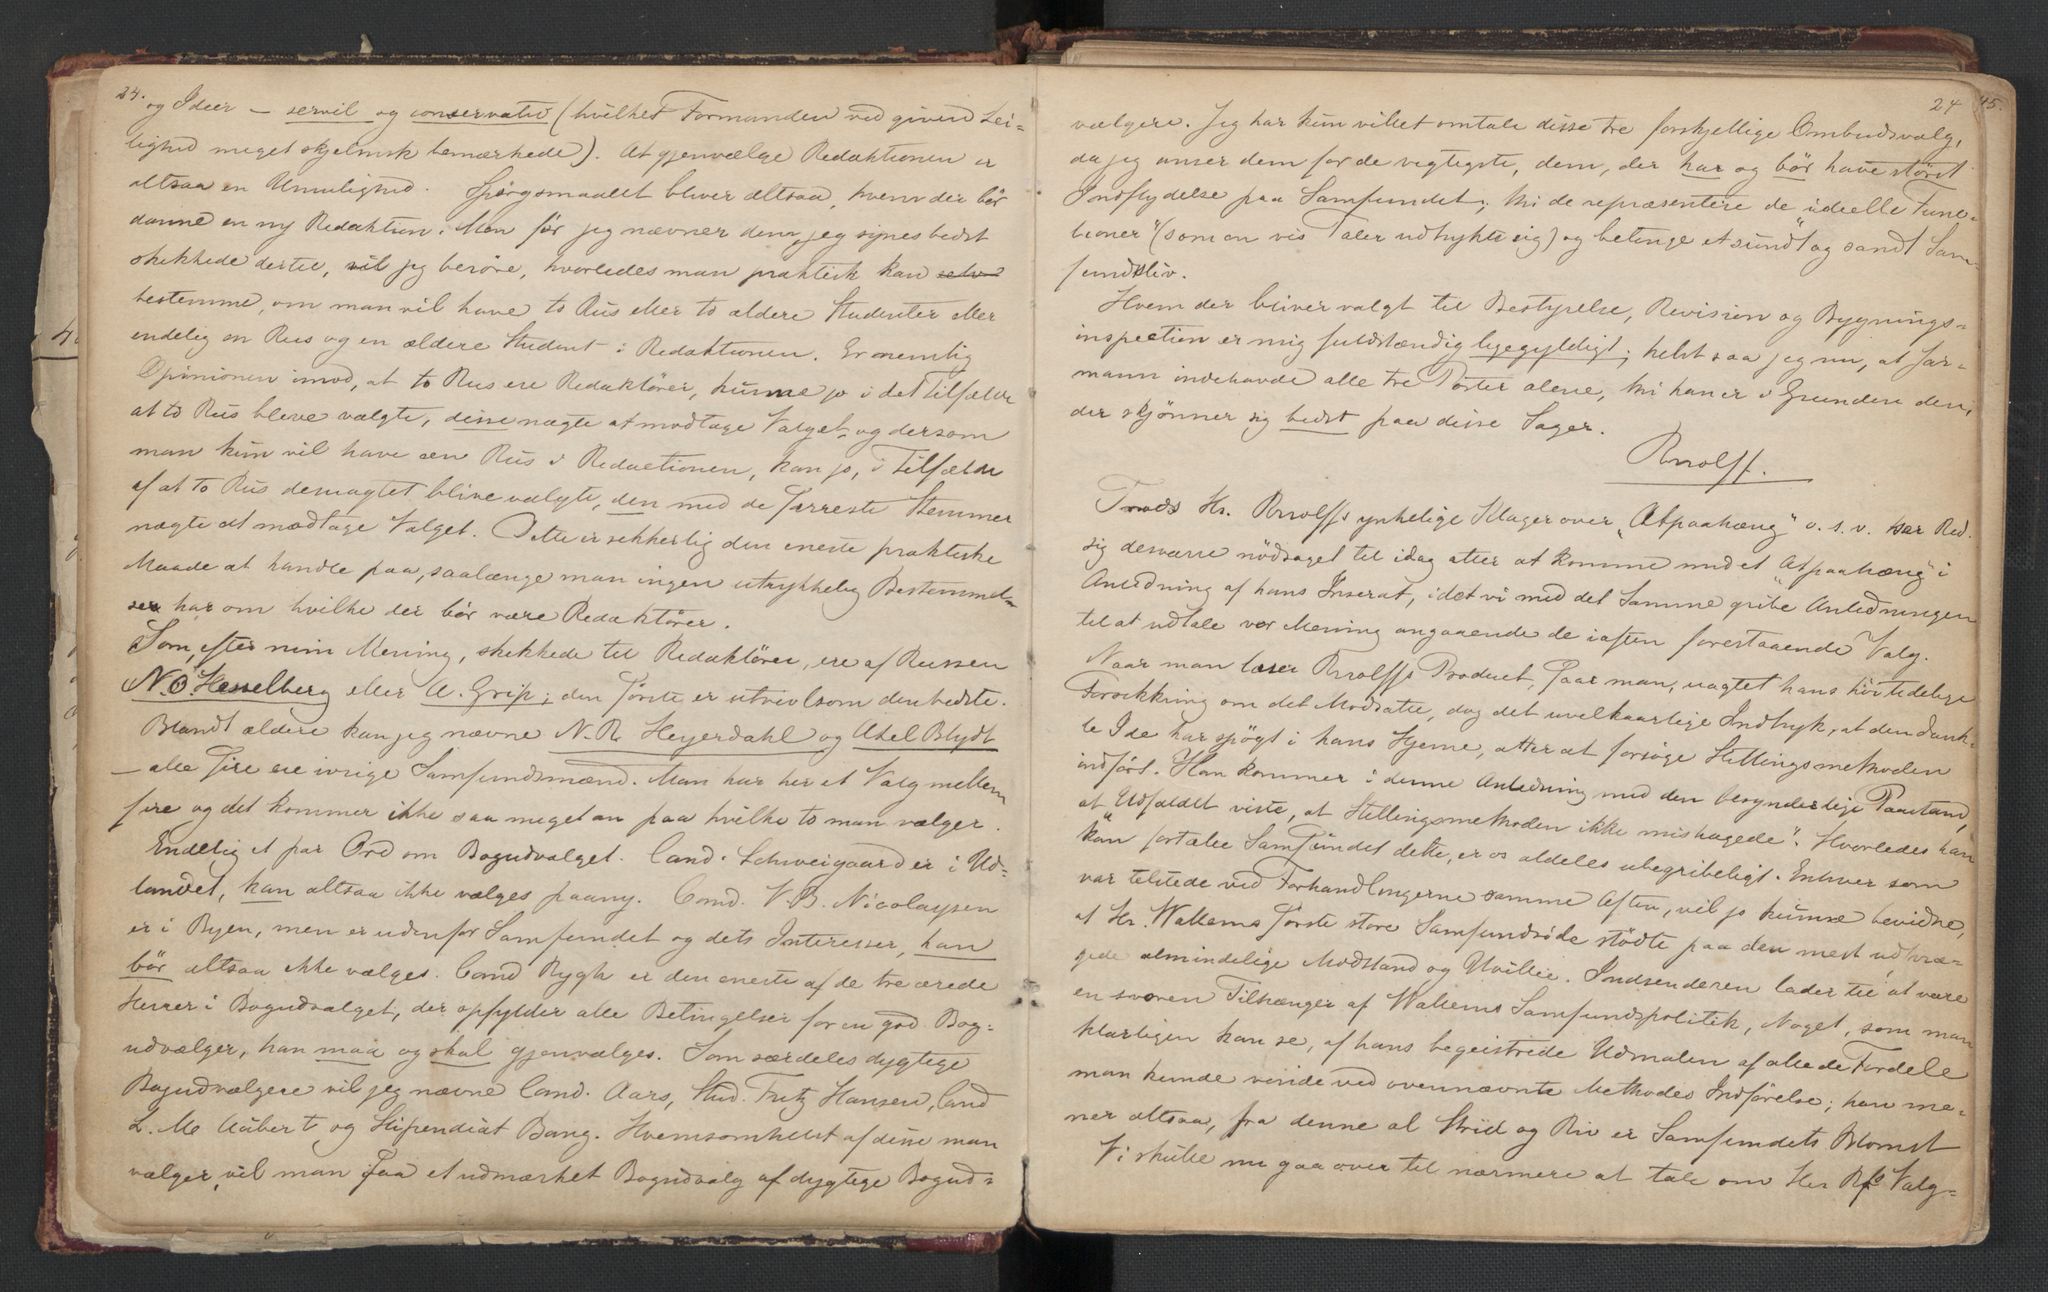 24.
og Ideer — servil og conservativ (hvilket Formanden ved given Lei-
lighed meget skjelmsk bemærkede). At gjenvælge Redaktionen er
altsaa en Umulighed. Spørgsmaalet bliver altsaa, hvem der bør
danne en ny Redaktion. Men før jeg nævner dem, jeg synes bedst
skikkede dertil, vil jeg berøre, hvorledes man praktisk kan selv
bestemme, om man vil have to Rus eller to ældre Studenter eller
endelig en Rus og en ældere Student i Redaktionen. Er nemlig
Opinionen imod, at to Rus ere Redaktører, kunne jo i det Tilfælde
at to Rus bleve valgte, disse nægte at modtage Valget, og dersom
man kun vil have een Rus i Redactionen, kan jo, i Tilfælde
af at to Rus desuagtet blive valgte, den med de færreste Stemmer
nægte at modtage Valget. Dette er sikkerlig den eneste praktiske
Maade at handle paa, saalænge man ingen udtrykkelig Bestemmel-
ser har om hvilke der bør være Redaktører.
Som, efter min Mening, skikkede til Redaktører, ere af Russen
N. O. Hesselberg eller A. Grip; den første er utvivlsom den bedste.
Blandt ældere kan jeg nævne N. R. Heyerdahl og Axel Blydt
— alle fire ere ivrige Samfundsmænd. Man har her et Valg mellem
fire og det kommer ikke saa meget an paa hvilke to man vælger.
Endelig et par Ord om Bogudvalget. Cand. Schweigaard er i Ud-
landet, kan altsaa ikke vælges paany. Cand. V. B. Nicolaysen
er i Byen, men er udenfor Samfundet og dets Interesser, han
bør altsaa ikke vælges. Cand Rygh er den eneste af de tre ærede
Herrer i Bogudvalget, der opfylder alle Betingelser for en god Bog-
udvælger, han maa og skal gjenvælges. Som særdeles dygtige
Bogudvælgere vil jeg nævne Cand. Aars, Stud. Fritz Hansen, Cand
L. M. Aubert og Stipendiat Bang. Hvemsomhelst af disse man
vælger, vil man faa et udmærket Bogudvalg af dygtige Bogud-
24 45.
vælgere. Jeg har kun villet omtale disse tre forskjellige Ombudsvalg,
da jeg anser dem for de vigtigste, dem, der har og bør have størst
Indflydelse paa Samfundet; thi de repræsentere de "ideelle Func-
tioner" (som en vis Taler udtrykte sig) og betinge et sundt og sandt Sam-
fundsliv.
Hvem der bliver valgt til Bestyrelse, Revision og Bygnings-
inspection er mig fuldstændig ligegyldigt; helst saa jeg nu, at Jar-
mann indehavde alle tre Poster alene, thi han er i Grunden den,
der skjønner sig bedst paa disse Sager.
Rnrolff.
Trods Hr. Rnrolffs ynkelige Klager over "Atpaahæng" o. s. v. har Red.
sig desværre nødsaget til idag atter at komme med et "Atpaahæng" i
Anledning af hans Inserat, idet vi med det Samme gribe Anledningen
til at udtale vor Mening angaaende de iaften forestaaende Valg.
Naar man læser Rnrolffs Product, faar man, uagtet hans høitidelige
Forsikkring om det Modsatte, dog det uvilkaarlige Indtryk, at den dunk-
le Ide har spøgt i hans Hjerne, atter at forsøge Stillingsmethoden
indført. Han kommer i denne Anledning med den besynderlige Paastand,
at "Udfaldet viste, at Stillingsmethoden ikke mishagede". Hvorledes han
kan fortælle Samfundet dette, er os aldeles ubegribeligt. Enhver som
var tilstede ved Forhandlingerne samme Aften, vil jo kunne bevidne,
at Hr. Wallems første store Samfundsøde stødte paa den mest udtræ-
gede almindelige Modstand og Uvillie. Indsenderen lader til at være
en svoren Tilhænger af Wallems Samfundspolitik, Noget, som man
klarligen kan se, af hans begeistrede Udmalen af alle de Fordele
man kunde vinde ved ovennævnte Methodes Indførelse; han me-
ner altsaa, fra denne al Strid og Riv er Samfundets Blomst
Vi skulle nu gaa over til nærmere at tale om Her Rfs Valg-